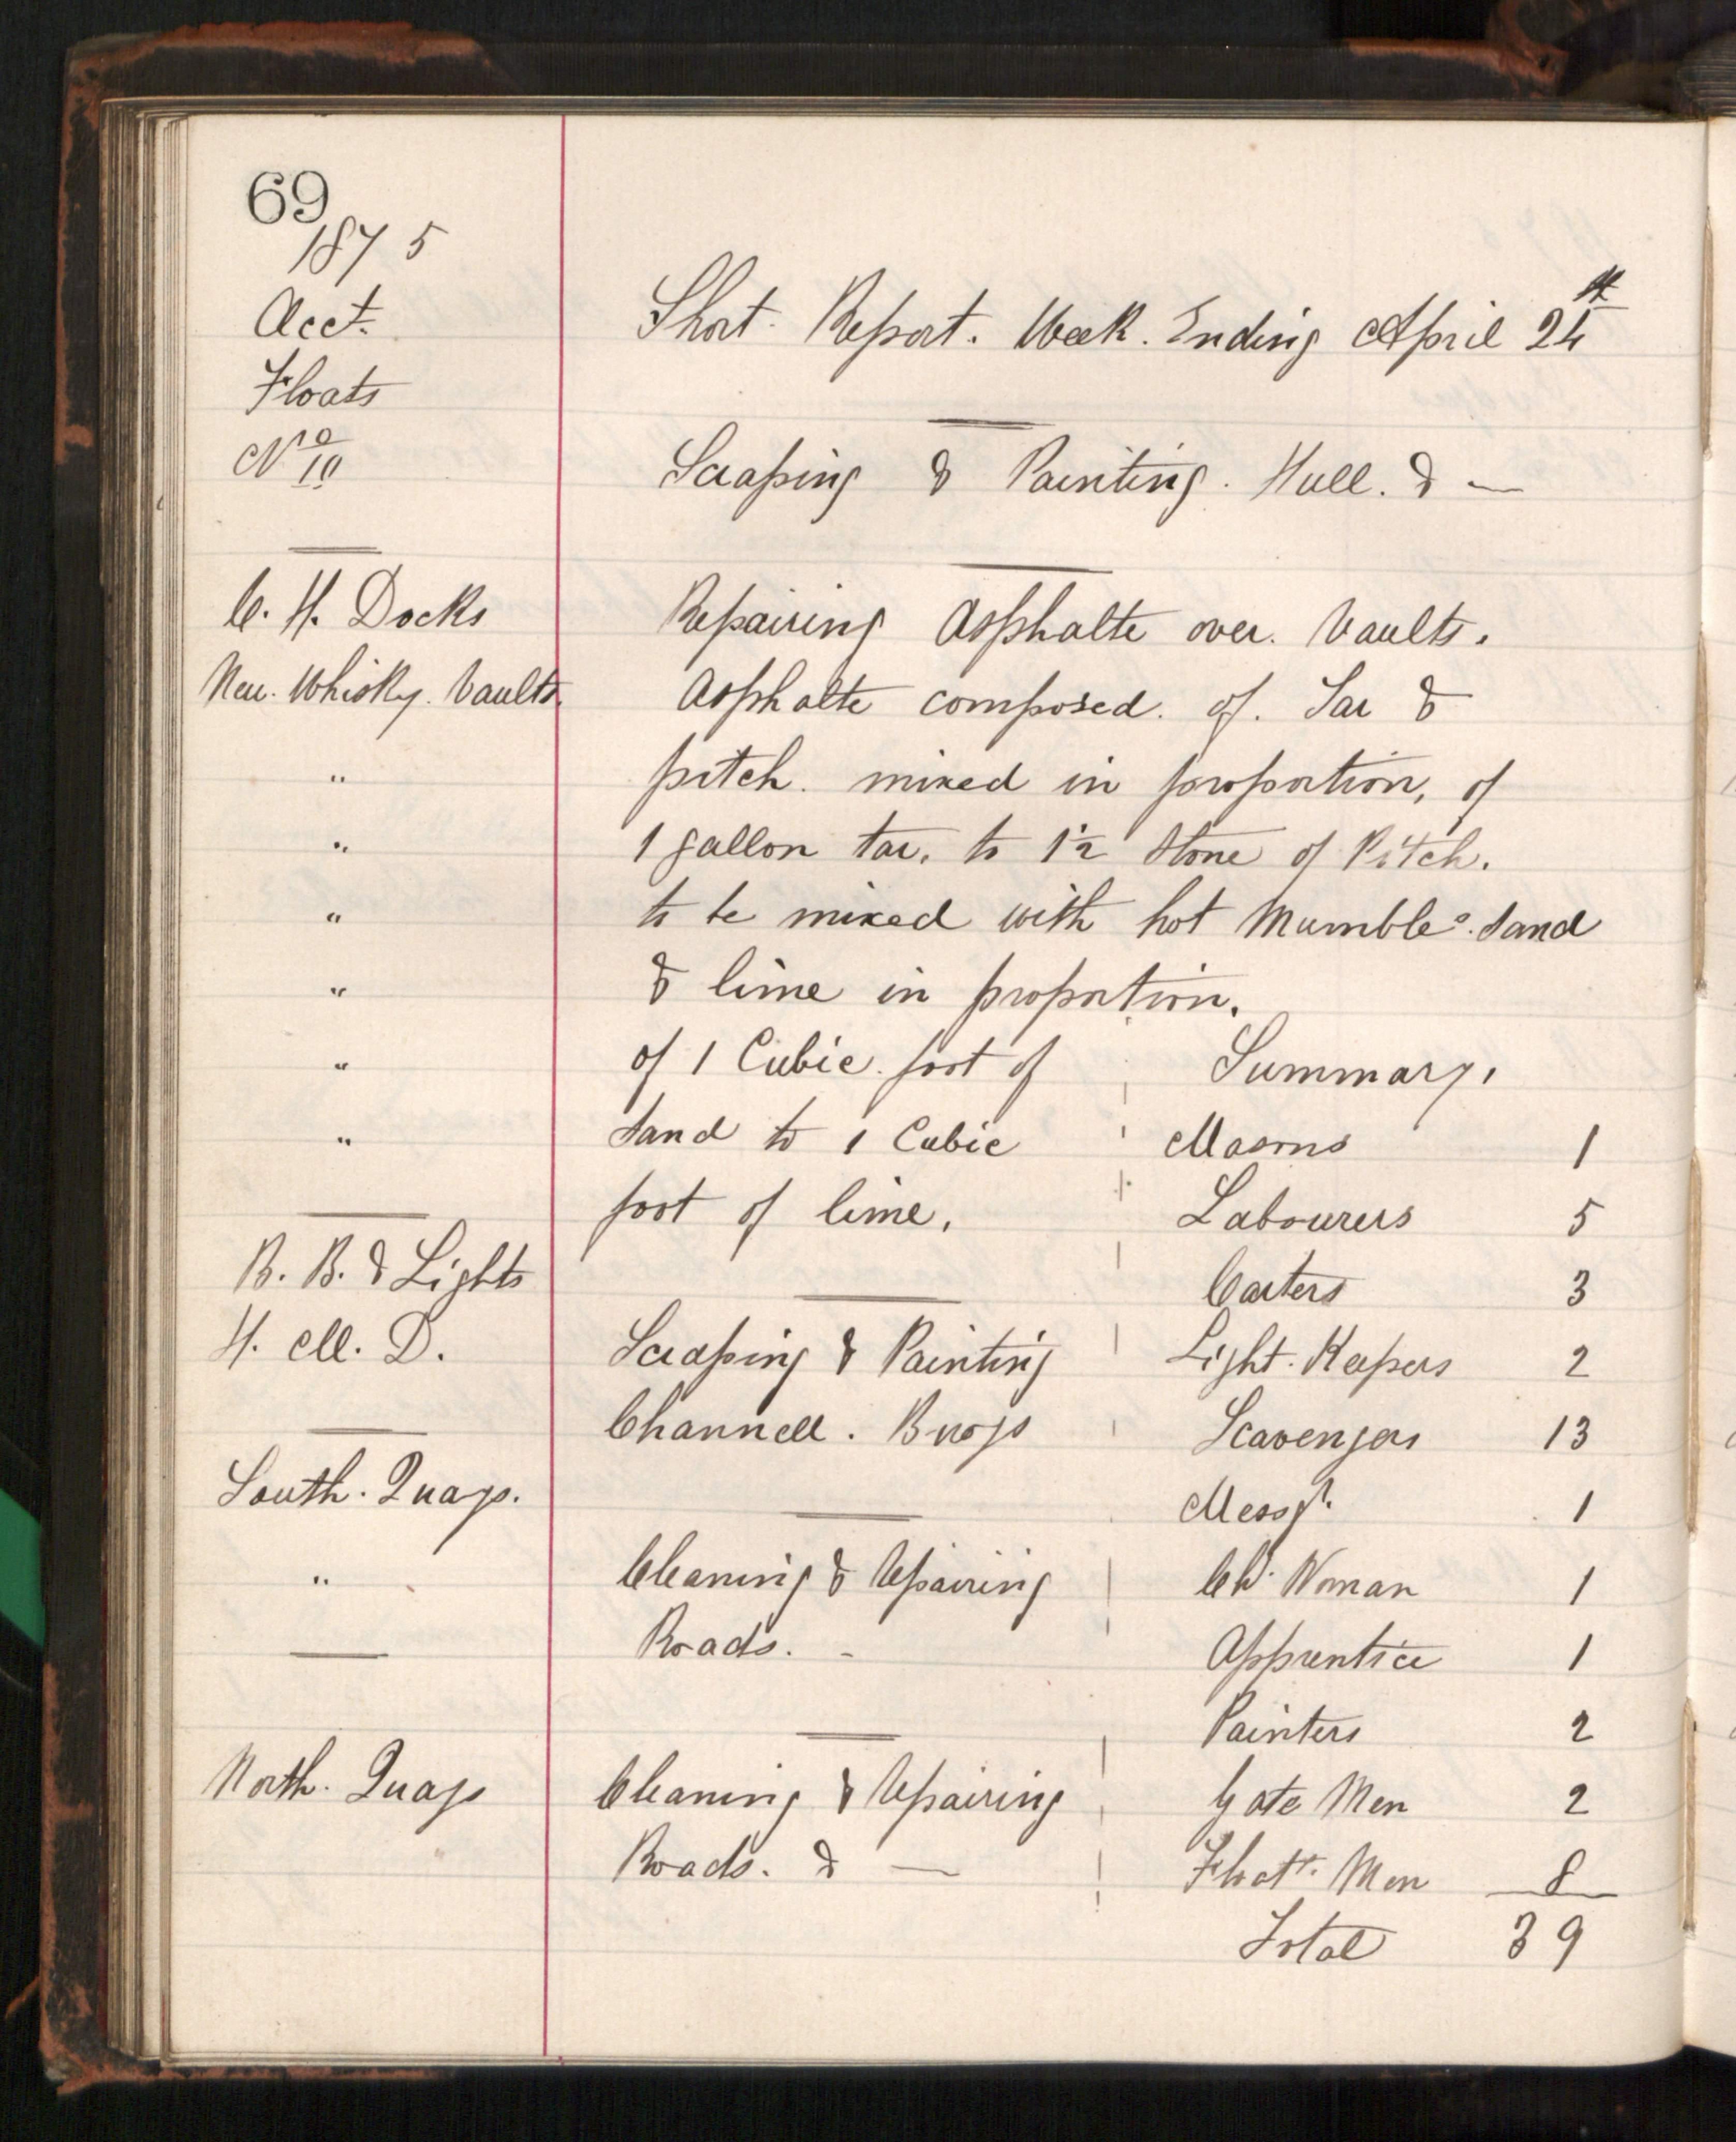 69
1875
Acct. Short Report. Week. Ending April 24th
Floats
No 10 Scraping & Painting. Hull. & —
C. H. Docks Repairing Asphalte over. Vaults.
New. Whisky. Vaults Asphalte composed. of. Tar &
" pitch. mixed in proportion, of
" 1 gallon tar, to 1½ Stone of Pitch.
" to be mixed with hot Mumbles. sand
" & lime in proportion.
" of 1 Cubic foot of Summary.
" sand to 1 Cubic Masons 1
foot of lime. Labourers 5
B. B. & Lights Carters 3
H. M. D. Scraping & Painting Light. Keepers 2
Channell. Buoys Scavengers 13
South. Quays. Messgr. 1
" Cleaning & Repairing Ch. Woman 1
Roads. - Apprentice 1
Painters 2
North. Quays Cleaning & Repairing Gate Men 2
Roads. & — Floatg. Men 8
Total 39